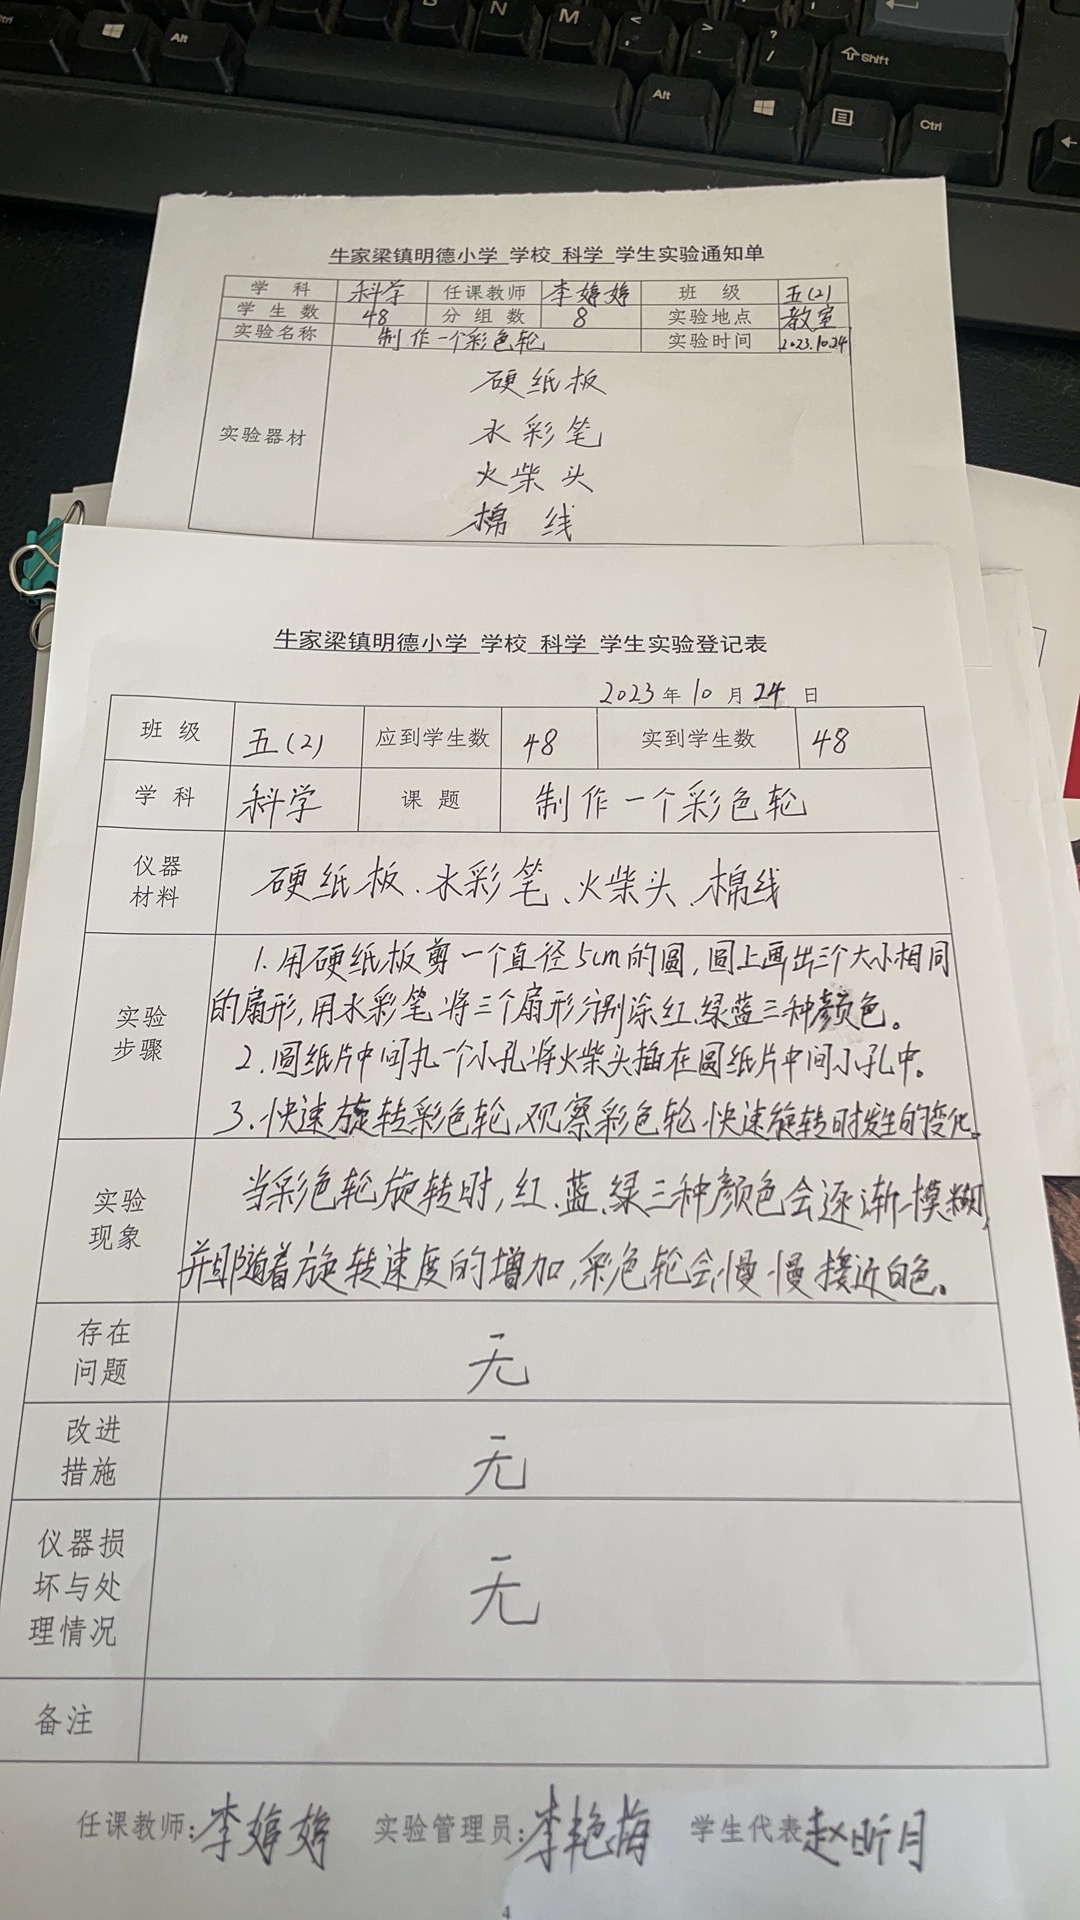 Ctrl
Alt
B N M < , > . ? /
⇧Shift
Alt
Ctrl
牛家梁镇明德小学 学校 科学 学生实验通知单
学 科 科学 任课教师 李婷婷 班 级 五(2)
学生数 48 分组数 8 实验地点 教室
实验名称 制作一个彩色轮 实验时间 2023.10.24
实验器材
硬纸板
水彩笔
火柴头
棉线
牛家梁镇明德小学 学校 科学 学生实验登记表
2023年10月24日
班级 五(2) 应到学生数 48 实到学生数 48
学科 科学 课题 制作一个彩色轮
仪器
材料
硬纸板、水彩笔、火柴头、棉线
实验
步骤
1.用硬纸板剪一个直径5cm的圆,圆上画出三个大小相同
的扇形,用水彩笔将三个扇形分别涂红、绿蓝三种颜色。
2.圆纸片中间扎一个小孔将火柴头插在圆纸片中间小孔中。
3.快速旋转彩色轮,观察彩色轮快速旋转时发生的变化。
实验
现象
当彩色轮旋转时,红、蓝、绿三种颜色会逐渐模糊,
并且随着旋转速度的增加,彩色轮会慢慢接近白色。
存在
问题
无
改进
措施
无
仪器损
坏与处
理情况
无
备注
任课教师:李婷婷 实验管理员:李艳梅 学生代表赵昕月
4